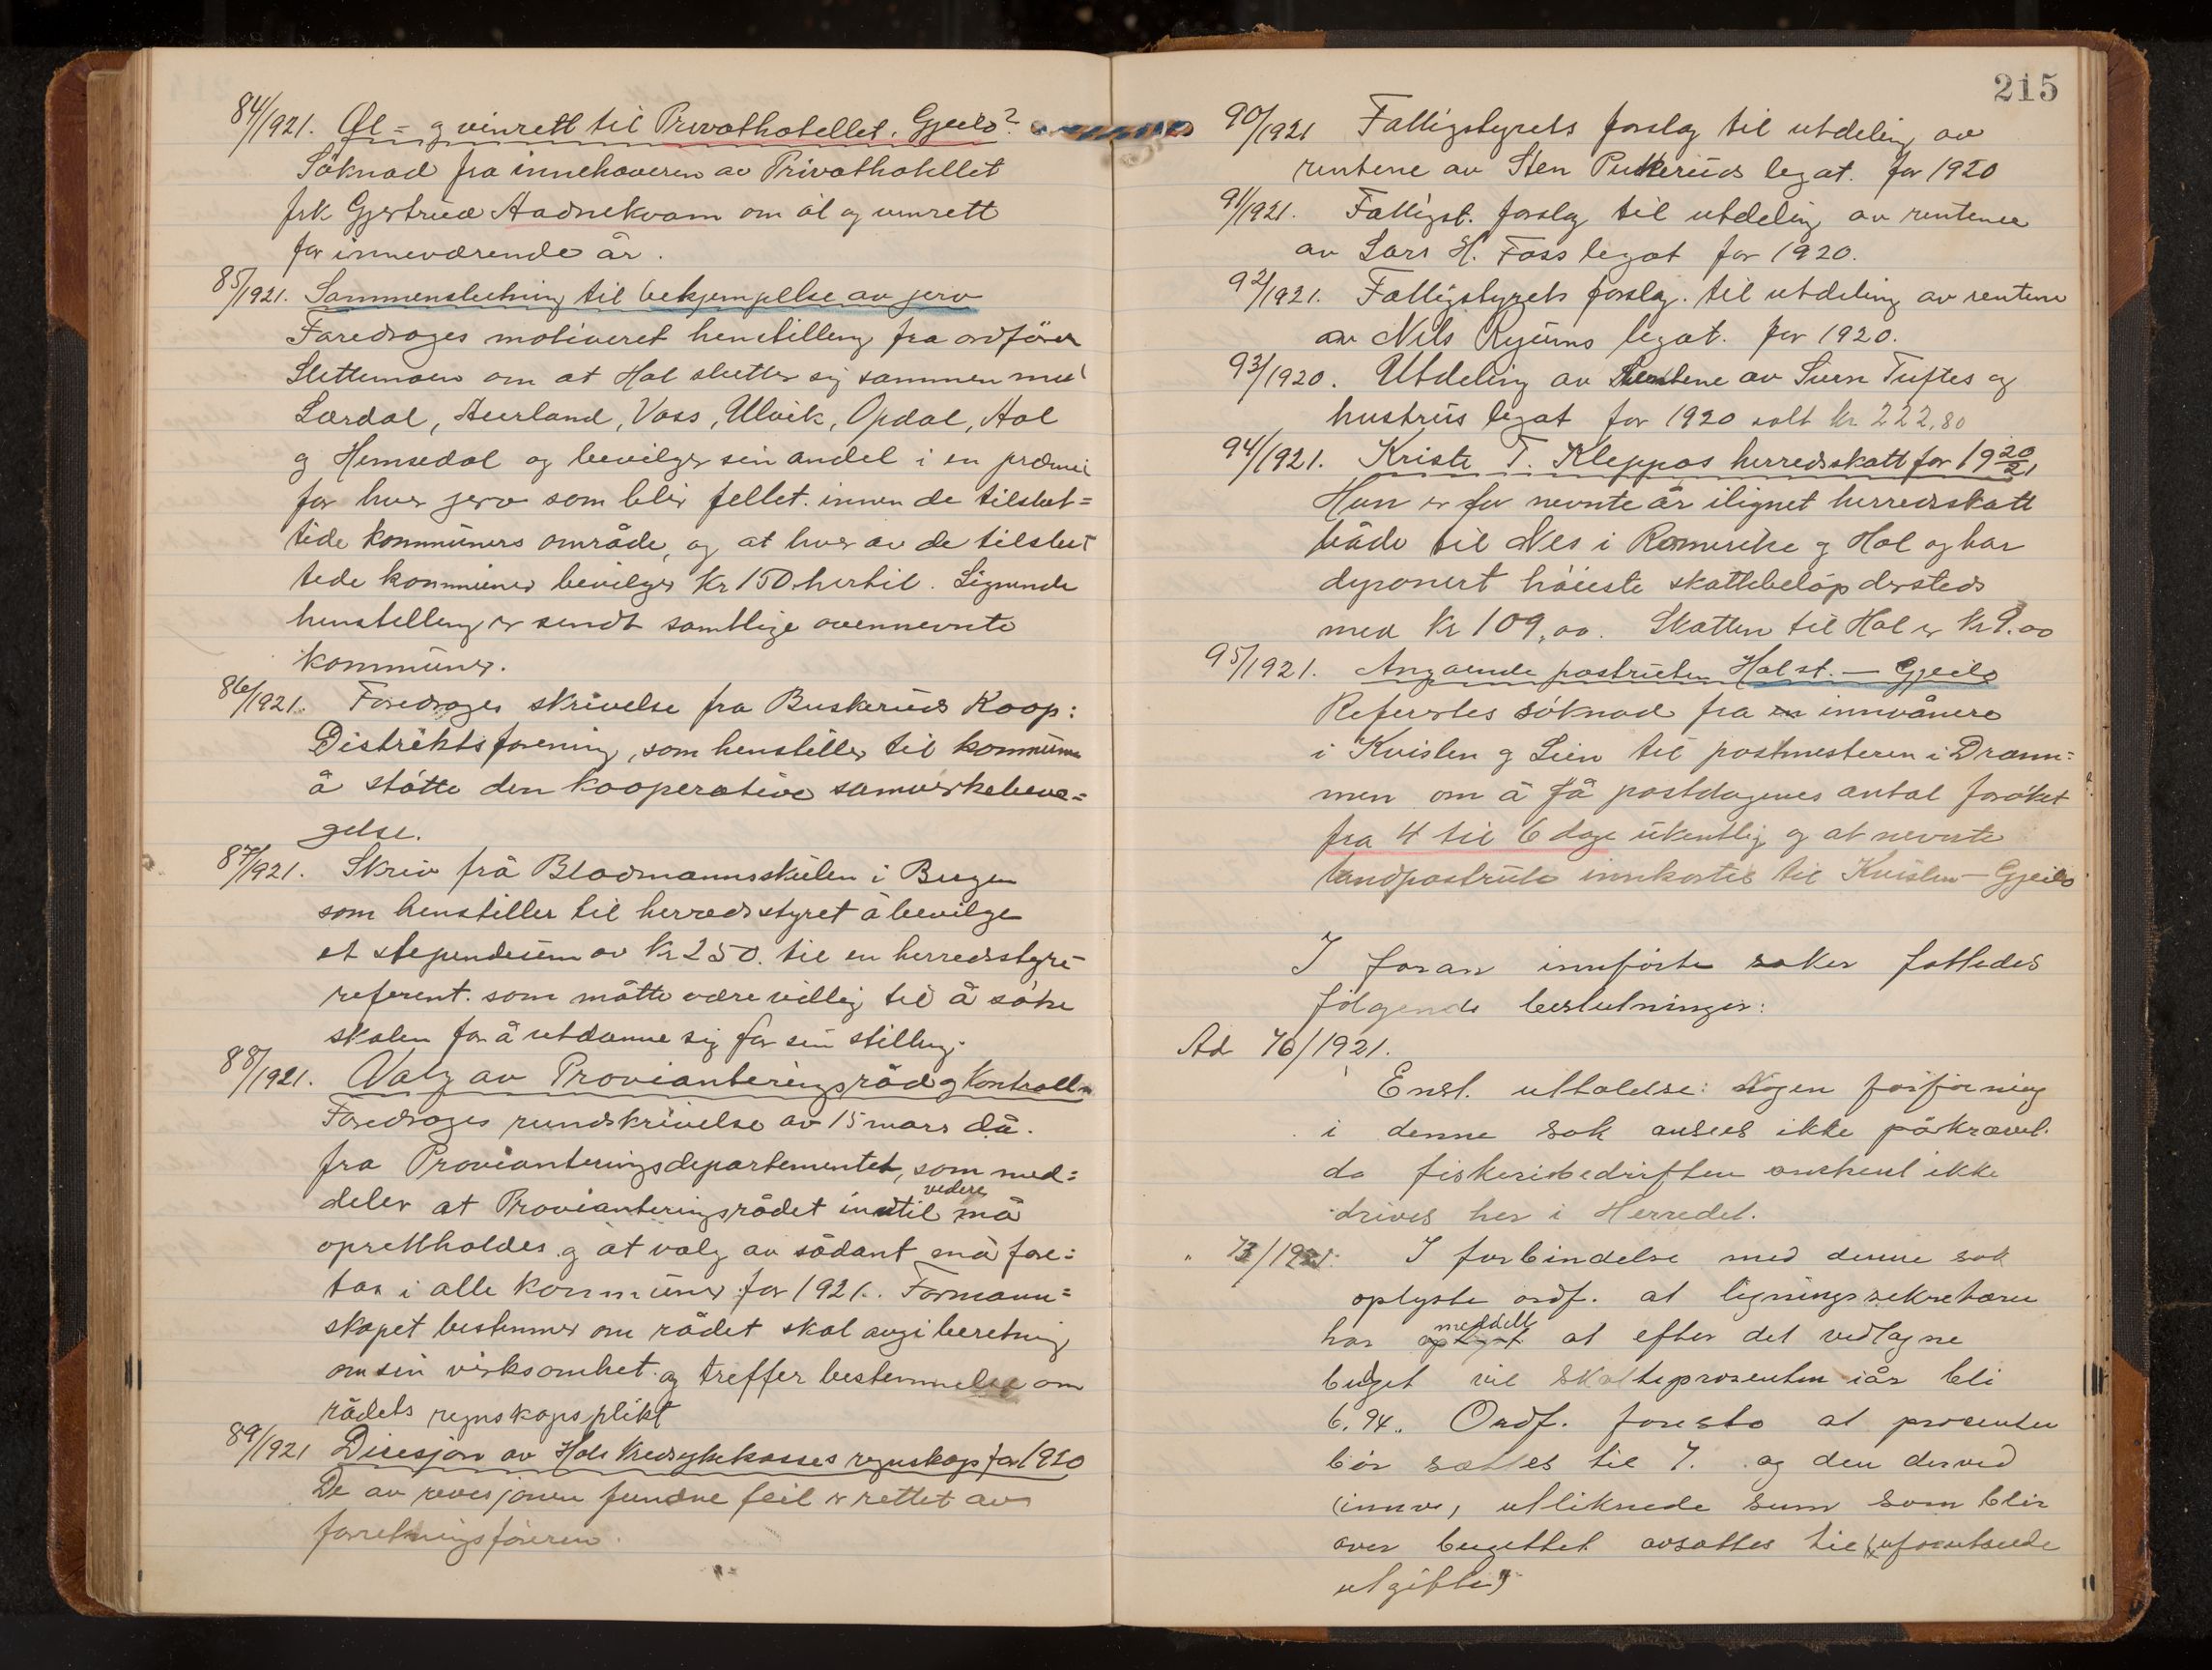 84/1921. Øl- og vinrett til Privathotellet, Gjeilo?
Söknad fra innehaveren av Privathotellet
frk Gjertrud Aadnekvam om öl og vinrett
for inneværende år.
85/1921. Sammenslutning til bekjempelse av jerv
Foredroges motiveret henstilling fra ordförer
Slettemoen om at Hol slutter sig sammen med
Lærdal, Aurland, Voss, Ulvik, Opdal, Hol
og Hemsedal og bevilger sin andel i en premie
for hver jerv som blir fellet innen de tilslut=
tede kommuners område, og at hver av de tilslut
tede kommuner bevilger kr 150 hertil. Lignende
henstilling er sendt samtlige ovennevnte
kommuner.
86/1921. Foredroges skrivelse fra Buskeruds Koop:
Distriktsforening, som henstiller til kommune
å stötte den kooperative samvirkebeve=
gelse.
87/1921. Skriv frå Bladmannsskulen i Bergen
som henstiller til herredsstyret å bevilge
et stipendium av kr 250. til en herredsstyre-
referent. som måtte være villig til å söke
skolen for å utdanne sig for sin stilling.
88/1921. Valg av Provianteringsråd og Kontroll
Foredroges rundskrivelse av 15 mars då.
fra Provianteringsdepartementet, som med=
deler at Provianteringsrådet inntil videre må
oprettholdes og at valg av sådant må fore=
tas i alle kommuner for 1921. Formann=
skapet bestemmer om rådet skal avgi beretning
om sin virksomhet og treffer bestemmelse om
rådets regnskapsplikt
89/1921 Decisjon av Hols Kredssykekasses regnskap for 1920
De av revisjonen fundne feil er rettet av
forretningsföreren.
215
90/1921 Fattigstyrets forslag til utdeling av
rentene av Sten Pukeruds legat. for 1920
91/1921. Fattigst. forslag til utdeling av rentene
av Lars H. Foss legat for 1920.
92/1921. Fattigstyrets forslag. til utdeling av rentene
av Nils Ryums legat. for 1920.
93/1920. Utdeling av Rentene av Sven Tuftes og
hustrus legat for 1920 salt kr 222,80
94/1921. Kristi T. Kleppos herredsskatt for 1920/21
Hun er for nevnte år ilignet herredsskatt
både til Nes i Romerike og Hol og har
deponert höieste skattebelöp dersteds
med kr 109,00. Skatten til Hol er kr 9.00
95/1921. Angaaende postruten Hol st. — Gjeilo
Refertes söknad fra en innvånere
i Kvislen og Lien til postmesteren i Dram=
men om å få postdagenes antal forøket
fra 4 til 6 dage ukentlig og at nevnte
landpostrute innkortes til Kvislen — Gjeilo
I foran innförte saker fattedes
fölgende beslutninger:
Ad 76/1921.
Enst. uttalelse: Nogen forföining
i denne sak ansees ikke påkrævet.
da fiskeribedriften omhent ikke
drives her i Herredet.
" 73/1921. I forbindelse med denne sak
oplyste ordf. at ligningssekretæren
har oplyst meddelt at efter det vedlagne
budget vil skatteprosenten iår bli
6.94. Ordf. foreslo at prosenten
bör sættes til 7. og den derved
(innv, utliknede sum som blir
over bugettet avsættes til (uforutseede
utgifter)